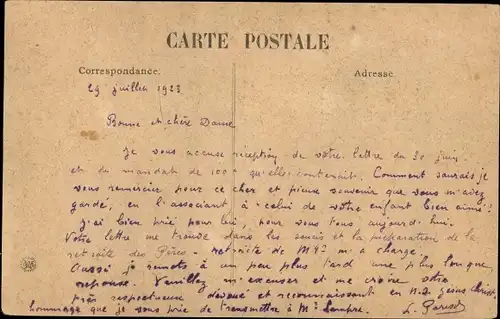 CARTE POSTALE
Correspondance.
Adresse.
29 juillet 1923
Bonne et chère Dame
Je vous accuse réception de votre lettre du 30 juin
et du mandat de 100 qu'elle contenait. Comment saurais je
vous remercier pour ce cher et pieux souvenir que vous m'avez
gardé, en l'associant à celui de votre enfant bien aimé!
J'ai bien prié pour lui, pour vous tous aujourd'hui.
Votre lettre me trouve dans les soucis et la préparation de la
retraite des Pères - retraite de m'a chargé.
Aussi je remets à un peu plus tard une plus longue
réponse. Veuillez m'excuser et me croire votre
très respectueux dévoué et reconnaissant en N.S. Jésus Christ
hommage que je vous prie de transmettre à Mr